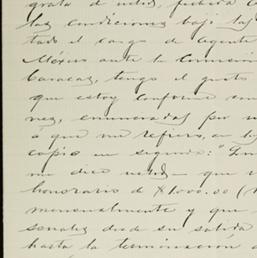 grata de usted, fechada
las condiciones bajo las
tado el cargo de Agente
México ante la Comisión
Caracas, tengo el gusto
que estoy conforme con
vez, enumeradas por
a que me refiero, en
copio en seguida: "En
me dice usted— que
honorario de $1000.00 (
mensualmente y que
sonales desde su salida
hasta la terminación